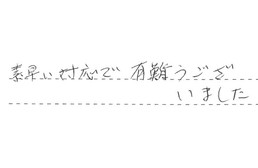 素早い対応で有難うござ
いました